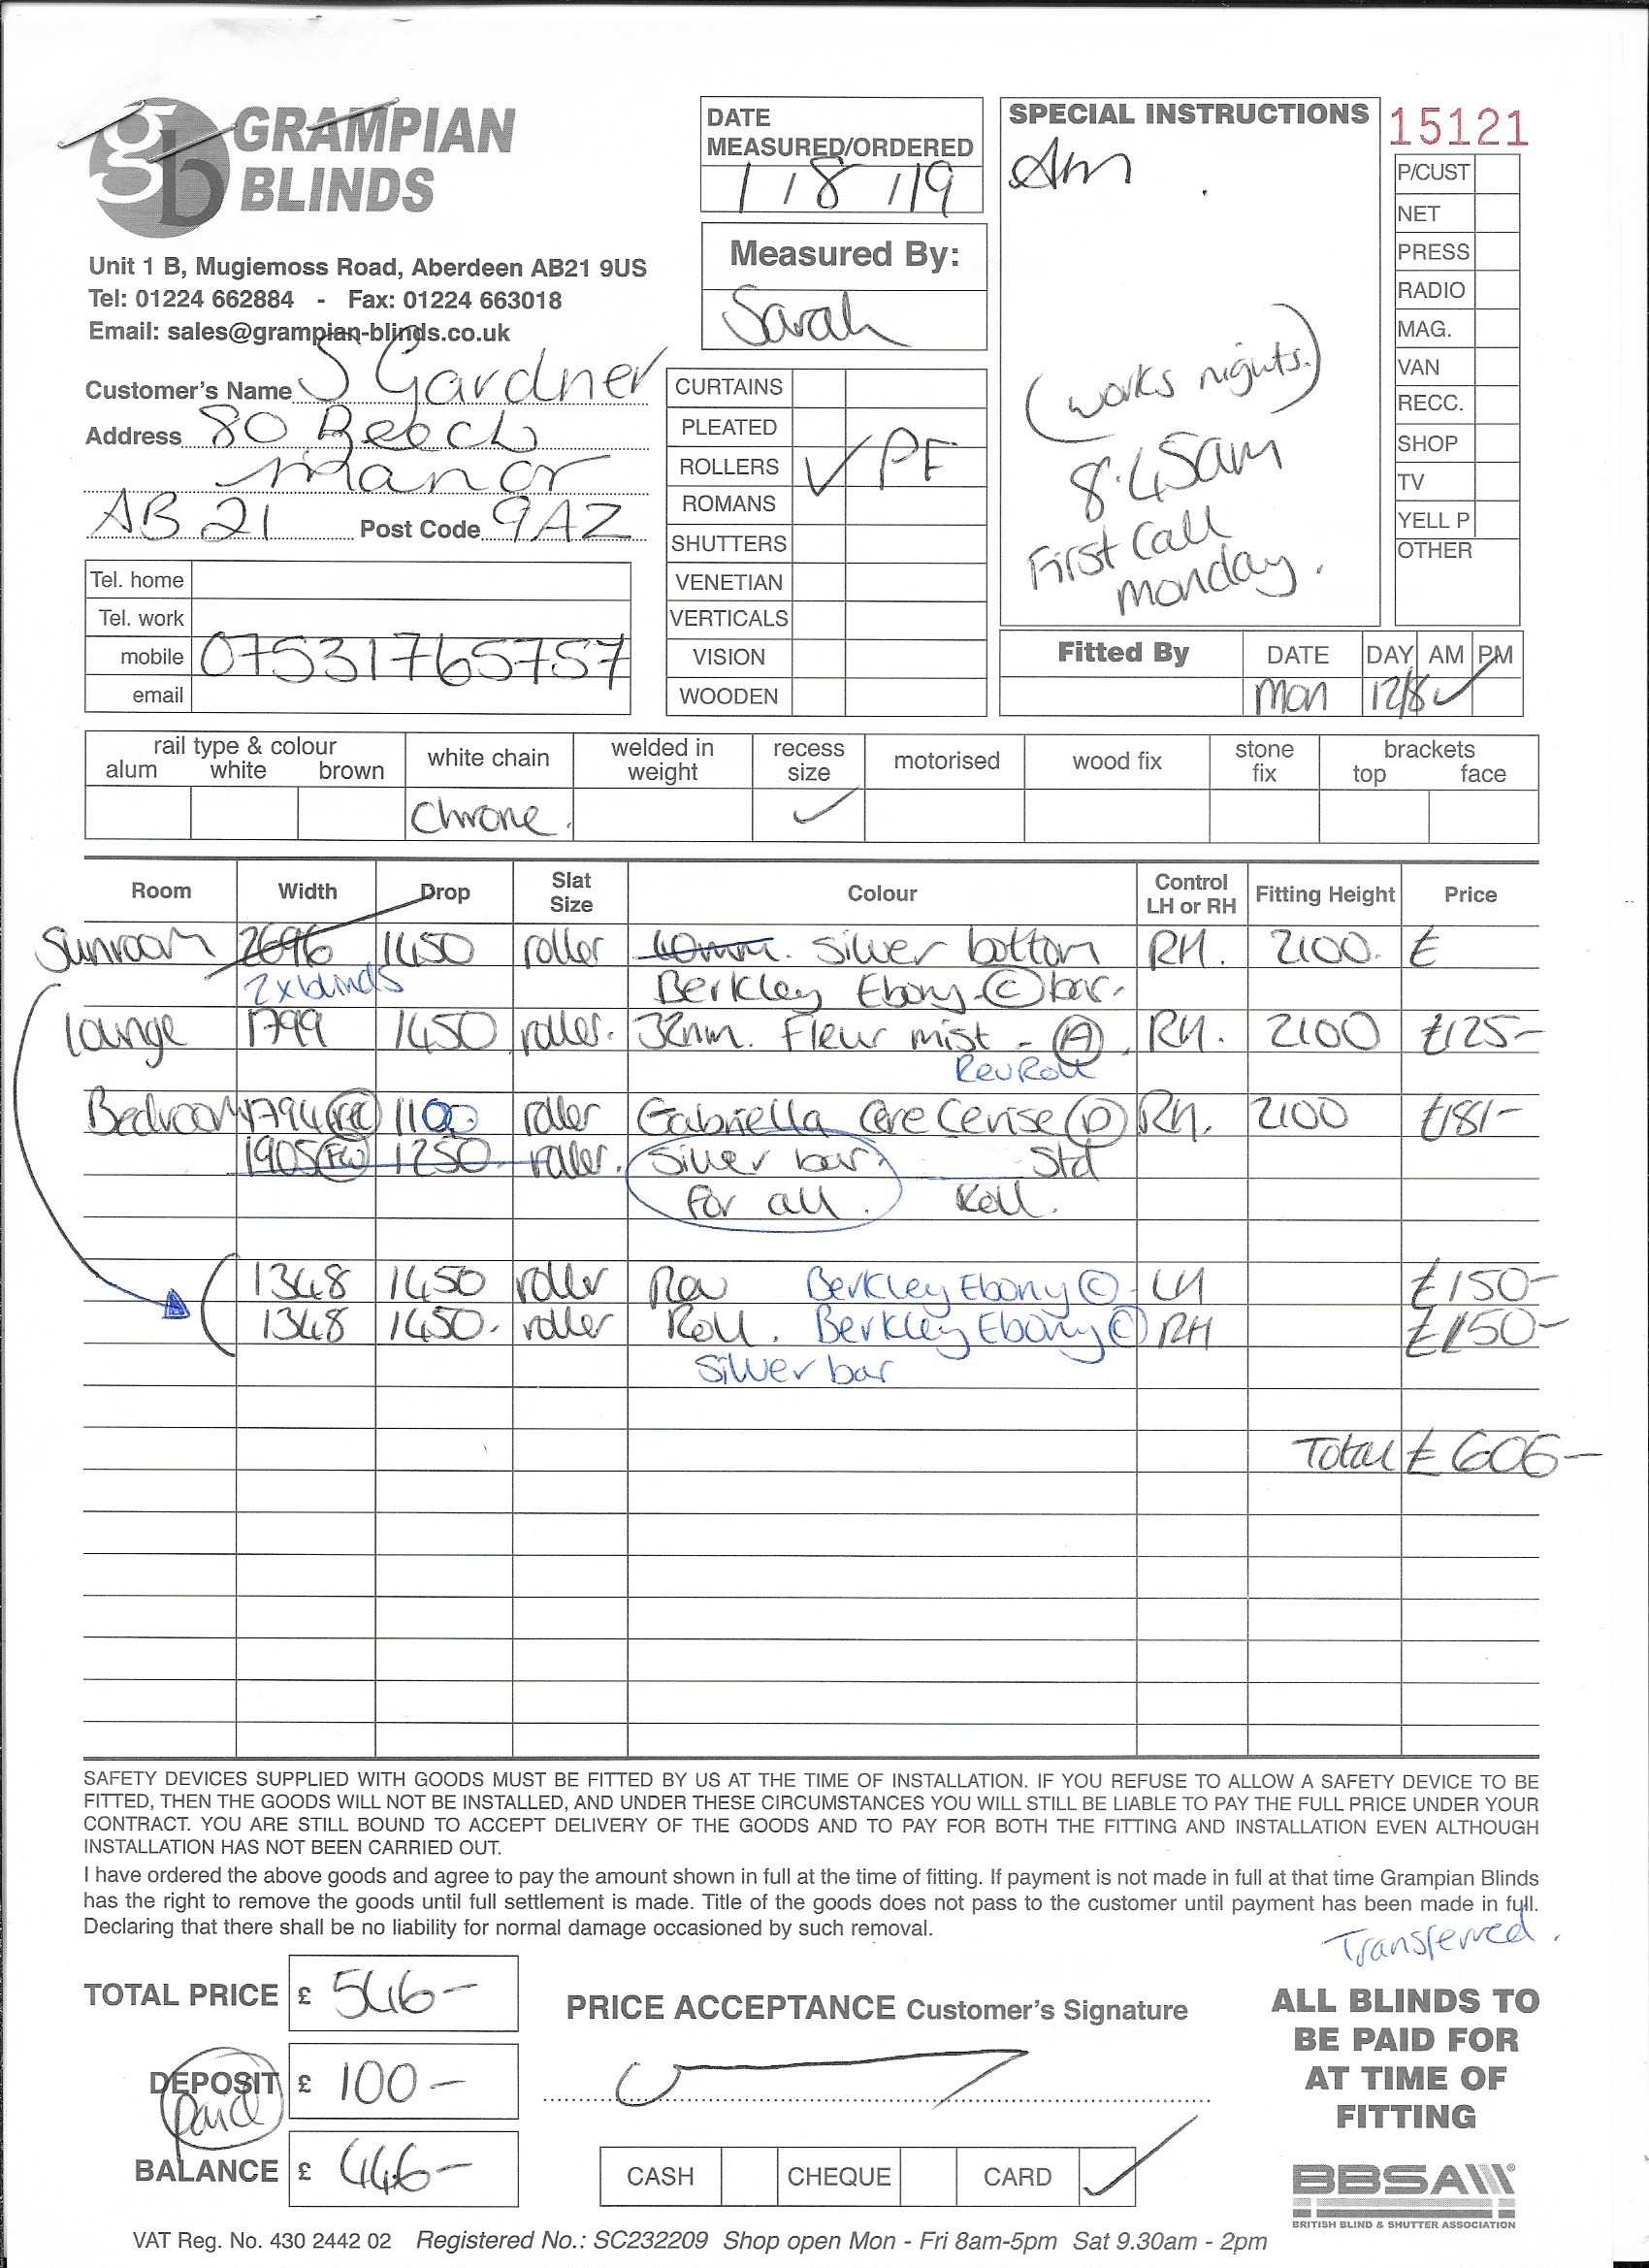 GRAMPIAN
BLINDS
Unit 1 B, Mugiemoss Road, Aberdeen AB21 9US
Tel: 01224 662884 - Fax: 01224 663018
Email: sales@grampian-blinds.co.uk
Customer's Name S Gardner
Address 80 Beech
Manor
AB 21 Post Code 9AZ
Tel. home
Tel. work
mobile 07531765757
email
DATE
MEASURED/ORDERED
1 / 8 / 19
Measured By:
Sarah
CURTAINS
PLEATED
ROLLERS ✓ PF
ROMANS
SHUTTERS
VENETIAN
VERTICALS
VISION
WOODEN
SPECIAL INSTRUCTIONS
Am
(works nights.)
8.45am
First Call
Monday.
15121
P/CUST
NET
PRESS
RADIO
MAG.
VAN
RECC.
SHOP
TV
YELL P
OTHER
Fitted By DATE DAY AM PM
Mon 12/8 ✓
rail type & colour white chain welded in weight recess size motorised wood fix stone fix brackets
alum white brown top face
Chrome. ✓
Room Width Drop Slat Size Colour Control LH or RH Fitting Height Price
Sunroom 2696 1450 roller 40mm. silver bottom RH. 2100. £
2x blinds Berkley Ebony (C) bar.
lounge 1799 1450 roller. 32mm. Fleur mist - (A). RH. 2100 £125-
Rev Roll
Bedroom 1794 (REC) 1100 roller Gabriella Cere Cerise (D) RH. 2100 £181-
1905 (FW) 1250 roller. Silver bar. Std
For all. Roll.
1348 1450 roller Rev Berkley Ebony (C) LH £150-
1348 1450. roller Roll. Berkley Ebony (C) RH £150-
Silver bar
Total £606-
SAFETY DEVICES SUPPLIED WITH GOODS MUST BE FITTED BY US AT THE TIME OF INSTALLATION. IF YOU REFUSE TO ALLOW A SAFETY DEVICE TO BE
FITTED, THEN THE GOODS WILL NOT BE INSTALLED, AND UNDER THESE CIRCUMSTANCES YOU WILL STILL BE LIABLE TO PAY THE FULL PRICE UNDER YOUR
CONTRACT. YOU ARE STILL BOUND TO ACCEPT DELIVERY OF THE GOODS AND TO PAY FOR BOTH THE FITTING AND INSTALLATION EVEN ALTHOUGH
INSTALLATION HAS NOT BEEN CARRIED OUT.
I have ordered the above goods and agree to pay the amount shown in full at the time of fitting. If payment is not made in full at that time Grampian Blinds
has the right to remove the goods until full settlement is made. Title of the goods does not pass to the customer until payment has been made in full.
Declaring that there shall be no liability for normal damage occasioned by such removal.
Transferred.
TOTAL PRICE £ 546-
DEPOSIT £ 100-
paid
BALANCE £ 446-
PRICE ACCEPTANCE Customer's Signature
CASH CHEQUE CARD ✓
ALL BLINDS TO
BE PAID FOR
AT TIME OF
FITTING
BBSA
BRITISH BLIND & SHUTTER ASSOCIATION
VAT Reg. No. 430 2442 02 Registered No.: SC232209 Shop open Mon - Fri 8am-5pm Sat 9.30am - 2pm